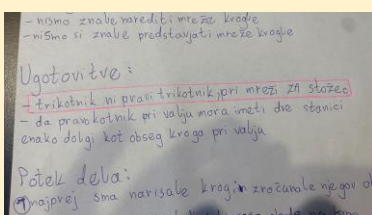 - nismo znale narediti mreže krogle
- nismo si znale predstavjati mreže krogle
Ugotovitve:
- trikotnik ni pravi trikotnik, pri mreži za stožec
- da pravokotnik pri valju mora imeti dve stanici
enako dolgi kot obseg kroga pri valju
Potek dela:
① najprej sma narisale krog in zračunale njegov